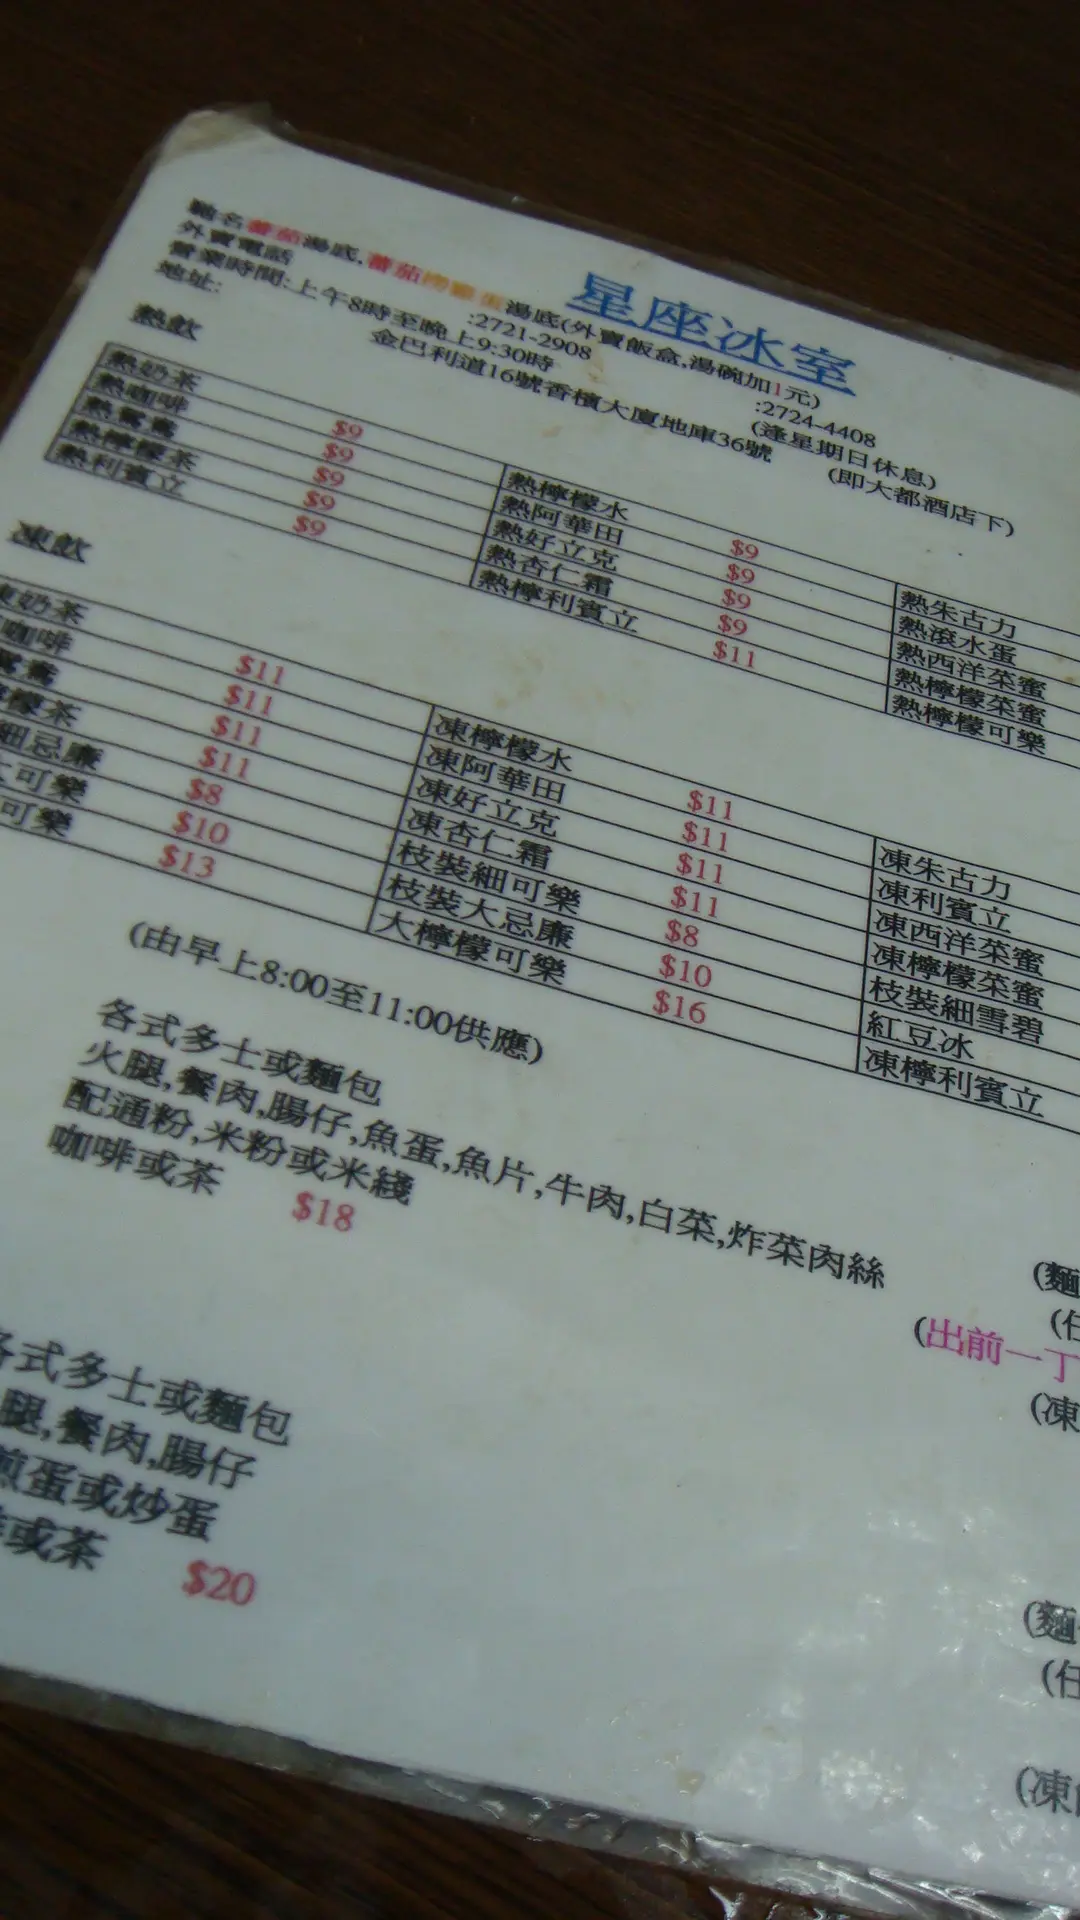 星座冰室
馳名蕃茄湯底,蕃茄滑雞蛋湯底(外賣飯盒,湯碗加1元)
外賣電話 :2721-2908 :2724-4408
營業時間:上午8時至晚上9:30時 (逢星期日休息)
地址: 金巴利道16號香檳大廈地庫36號 (即大都酒店下)
熱飲
熱奶茶 $9 熱檸檬水 $9 熱朱古力
熱咖啡 $9 熱阿華田 $9 熱滾水蛋
熱鴛鴦 $9 熱好立克 $9 熱西洋菜蜜
熱檸檬茶 $9 熱杏仁霜 $9 熱檸檬菜蜜
熱利賓立 $9 熱檸利賓立 $11 熱檸檬可樂
凍飲
凍奶茶 $11 凍檸檬水 $11 凍朱古力
咖啡 $11 凍阿華田 $11 凍利賓立
鴛鴦 $11 凍好立克 $11 凍西洋菜蜜
檸檬茶 $11 凍杏仁霜 $11 凍檸檬菜蜜
細忌廉 $8 枝裝細可樂 $8 枝裝細雪碧
可樂 $10 枝裝大忌廉 $10 紅豆冰
可樂 $13 大檸檬可樂 $16 凍檸利賓立
(由早上8:00至11:00供應)
各式多士或麵包
火腿,餐肉,腸仔,魚蛋,魚片,牛肉,白菜,炸菜肉絲
配通粉,米粉或米綫
咖啡或茶 $18
(麵
(任
(出前一丁
(凍
各式多士或麵包
腿,餐肉,腸仔
煎蛋或炒蛋
或茶 $20
(麵
(任
(凍